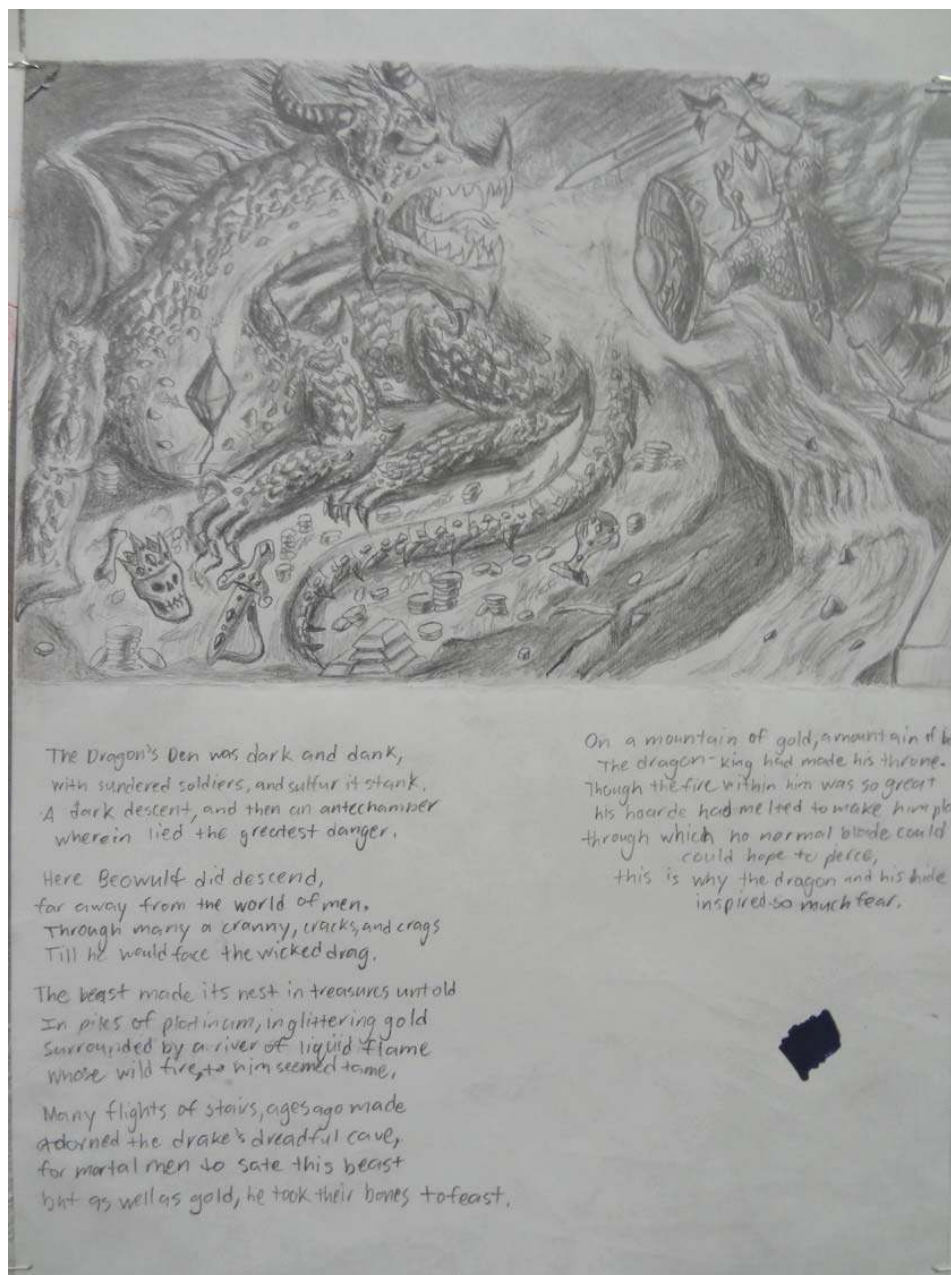 The Dragon's Den was dark and dank,
with sundered soldiers, and sulfur it stank.
A dark descent, and then an antechamber
wherein lied the greatest danger.
Here Beowulf did descend,
far away from the world of men.
Through many a cranny, cracks, and crags
Till he would face the wicked drag.
The beast made its nest in treasures untold
In piles of platinum, in glittering gold
Surrounded by a river of liquid flame
whose wild fire, to him seemed tame.
Many flights of stairs, ages ago made
adorned the drake's dreadful cave,
for mortal men to sate this beast
but as well as gold, he took their bones to feast.
On a mountain of gold, a mountain of
The dragon-king had made his throne.
Though the fire within him was so great
his hoarde had melted to make him
through which no normal blade could
could hope to pierce,
this is why the dragon and his hide
inspired so much fear.